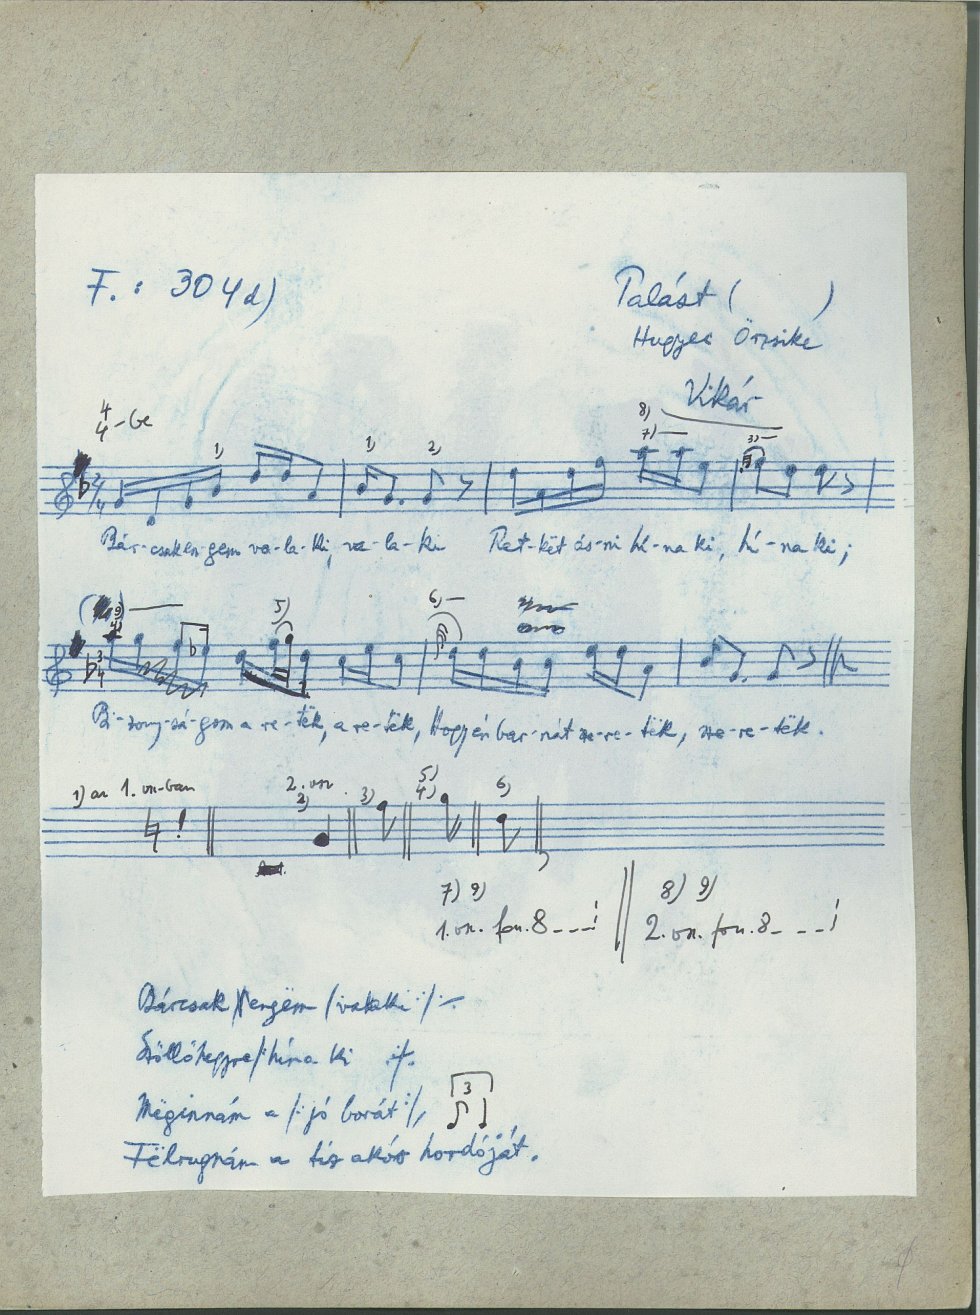 F.: 304d)
Palást ( )
Hugyec Örzsike
Vikár
4/4-be
8)
7)
1) 1) 2) 3)
Bár-csak en-gem va-la-ki, va-la-ki Ret-két ás-ni hí-na ki, hí-na ki;
9) 5) 6)
4)
3/4
Bi-zony-sá-gom a re-tëk, a re-tëk, Hogy én bar-nát sze-re-tëk, sze-re-tëk.
1) az 1. vn-ban 2. vn. 2) 3) 5) 4) 6)
7) 9) 8) 9)
1. vn. fon. 8 - - - i 2. vn. fon. 8 - - - i
Bárcsak engëm /:valaki:/
Szőllőhegyre /:hína ki :/.
Mëginnám a /:jó borát:/, 3
Fëlrugnám a tíz akós hordóját.